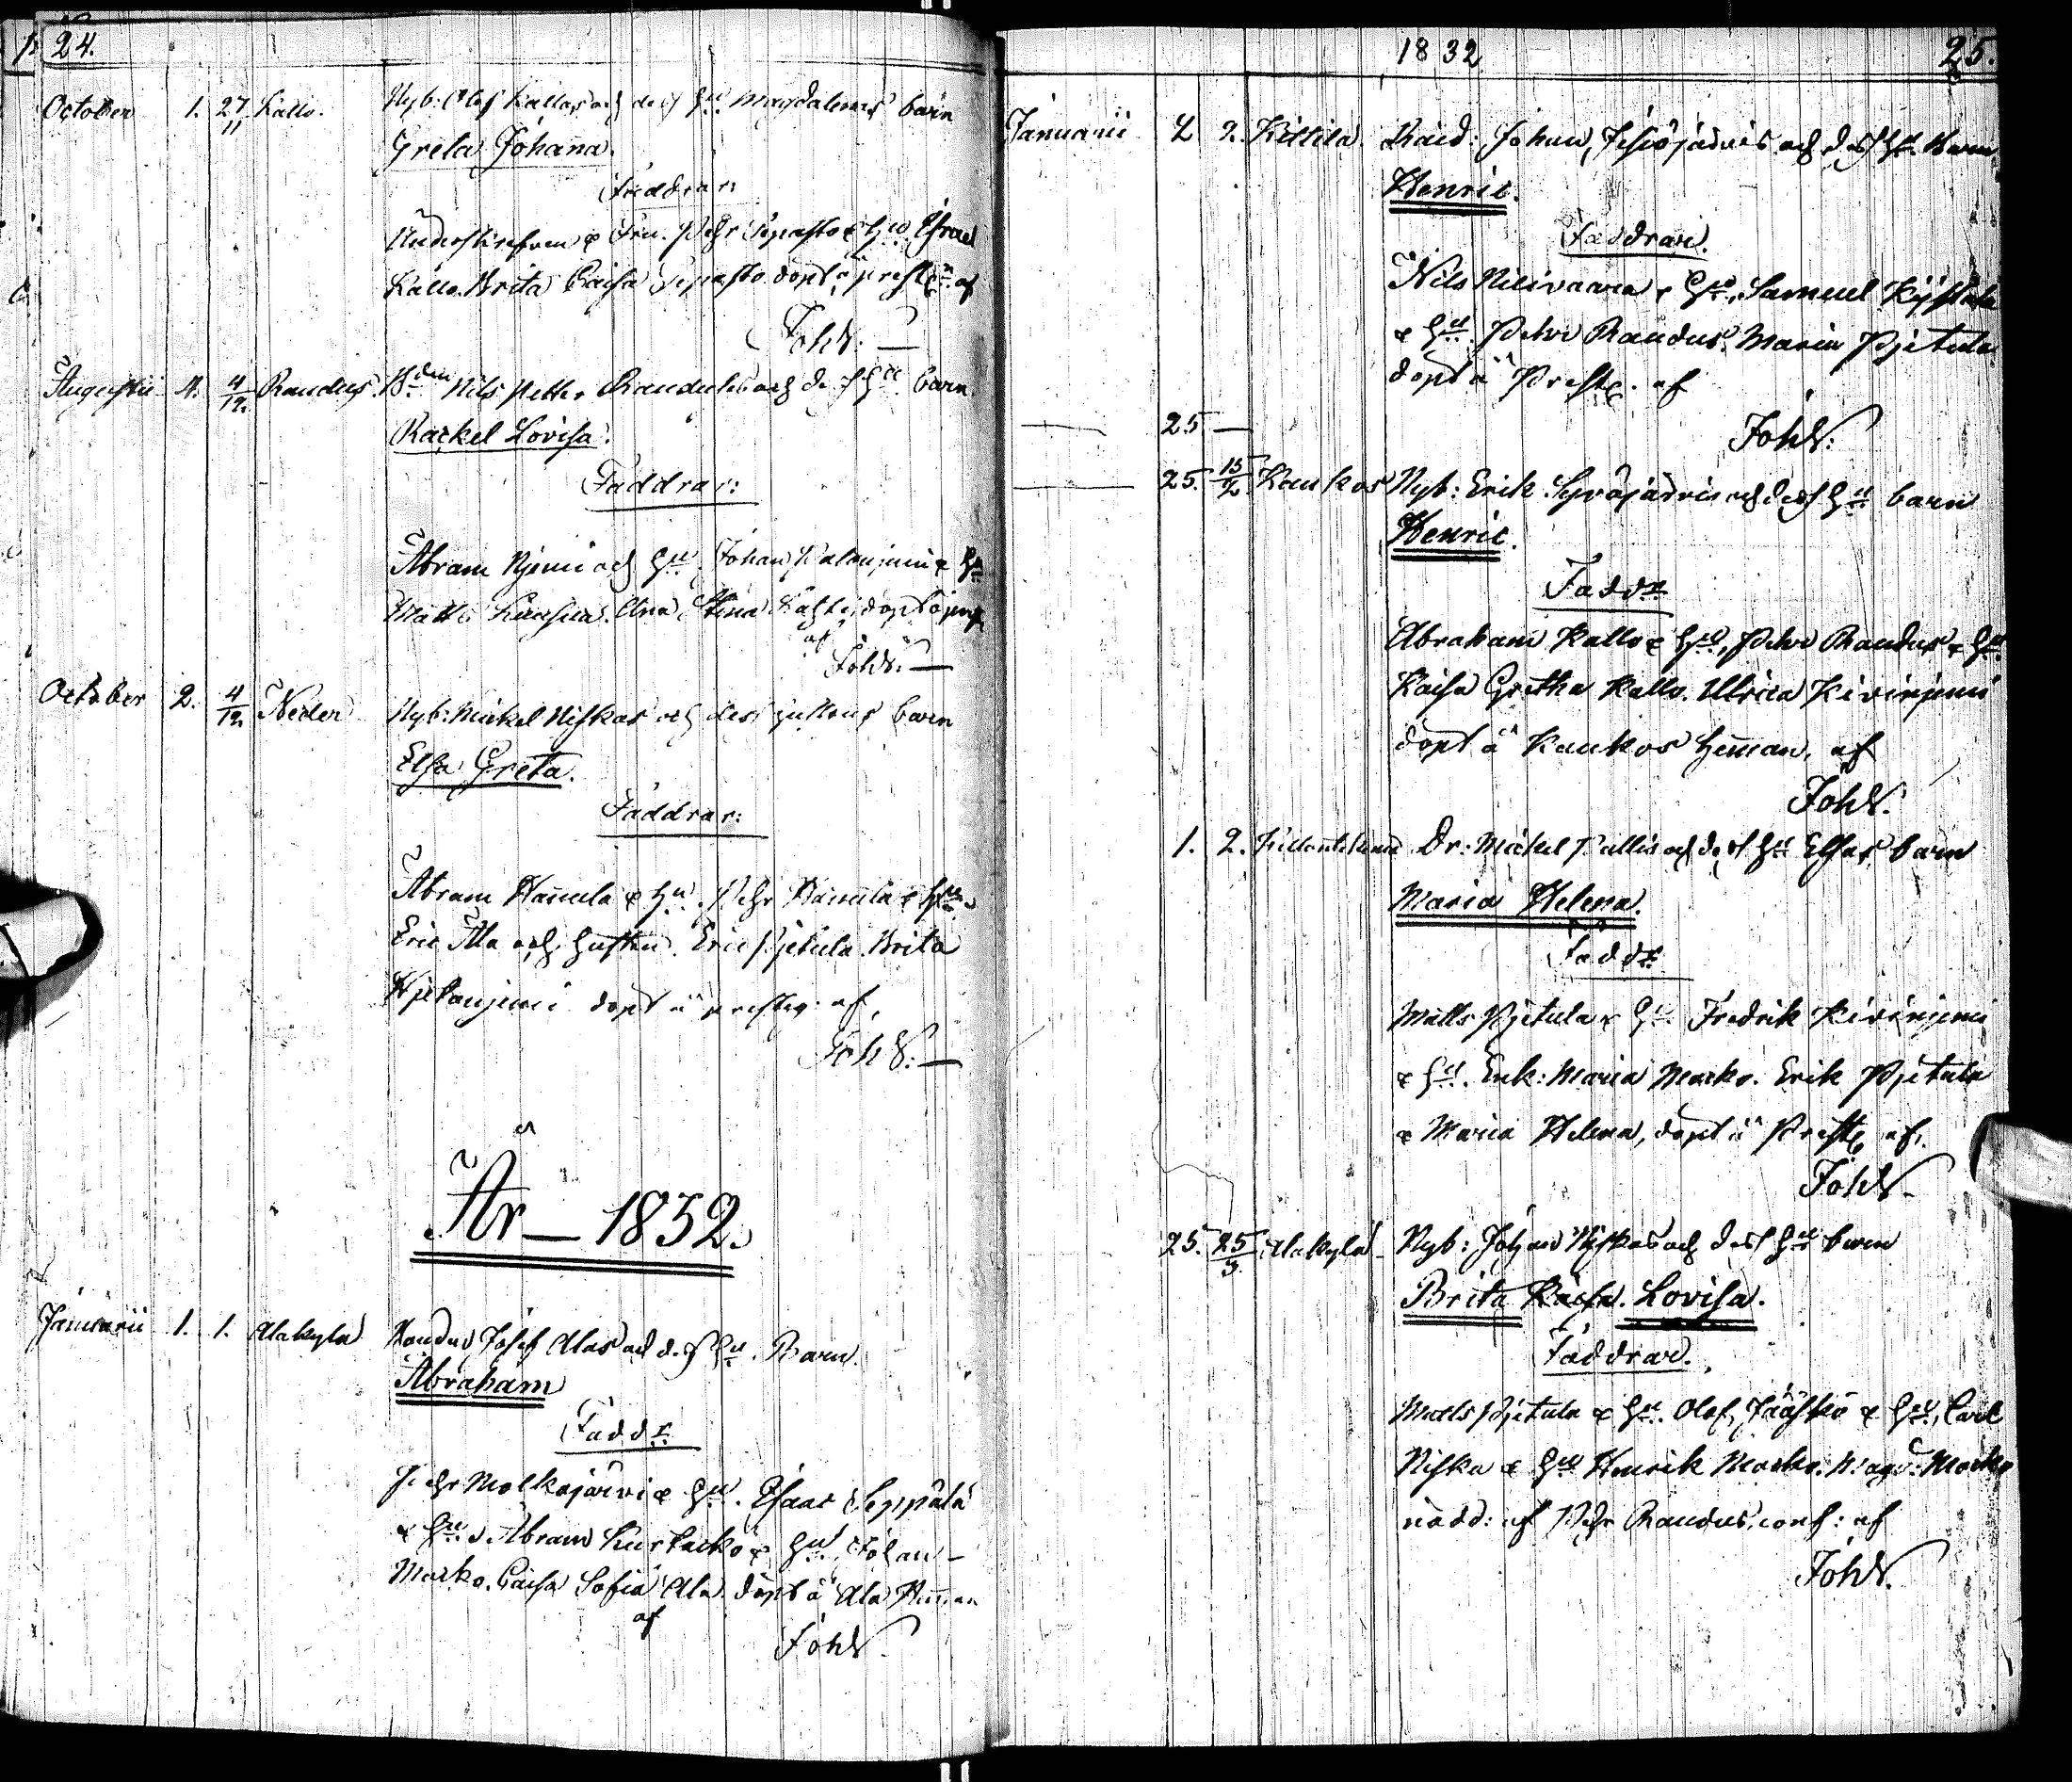 24.
October 1. 27/11 Kallo. Nyb: Olof Kallos och dess Hu Magdalenas barn
Greta Johana.
Faddrar:
& Fru. Pehr Sepasto & Hu Israel
Kallo. Brita Caisa Sepasto döpt å prestg af
Joh W:
Augustii 4. 4/12 Raudus. Bden Nils Petter Raudus och dess Hu barn
Rackel Lovisa.
Faddrar:
Abram Njemi och Hu. Johan Palonjemi & Hu
Matts Ana Stina döpt å
af
Joh W:
October 2. 4/12 Neder Nyb: Mickel Niskas och dess hustrus barn
Elsa Greta.
Faddrar:
Abram Hannula & Hu. Pehr Hannula & Hu
Eric Ala och hustru. Eric Pjetula. Brita
Hjetanjemi döpt å prestg: af
Joh W:
År 1832.
Januarii 1. 1. Alakyla Josef Alas och dess Hu. Barn.
Abraham
Fadd r
Pehr Molkojärvi & Hu. Isaac Seppälä
& Hu. Abram Kurkocko & Hu Johan
Marko. Caisa Sofia Ala. döpt å Ala Heman
af
Joh W.
1832 25.
Januarii 2 2. Kittilä. Johan, Jesiöjärvis och dess Hu. Barn
Henric.
Faddrar.
Nils Nilivaara & Hu. Samuel Kyställä
& Hu. Petter Raudus. Maria Pjetula
döpt å Prestg. af
25
Joh W:
25. 15/2 Kaukos Nyb: Erik Syväjärvis och dess Hu barn
Henric.
Fadd r
Abraham Kallo & Hu, Petter Raudus & Hu.
Kaisa Gretha Kallo. Ulrica Kivinjemi
döpt å Kaukos Heman. af
Joh W.
1. 2. Dr: Mickel Pallis och dess Hu Elsas barn
Maria Helena.
Fadd r
Matts Pjetula & Hu. Fredrik Kivinjemi
& Hu. Enk: Maria Marko. Erik Pjetula
& Maria Helena, döpt å Prestg af.
Joh W.
25. 25/3 Alakylä Nyb: Johan Niskas och dess Hu barn
Brita Kaisa. Lovisa.
Faddrar.
Matts Pjetula & Hu. Olof, Jääskö & Hu, Carl
Niska & Hu Henrik Marko. Magd: Marko
nödd: af Pehr Raudus, conf: af
Joh W.